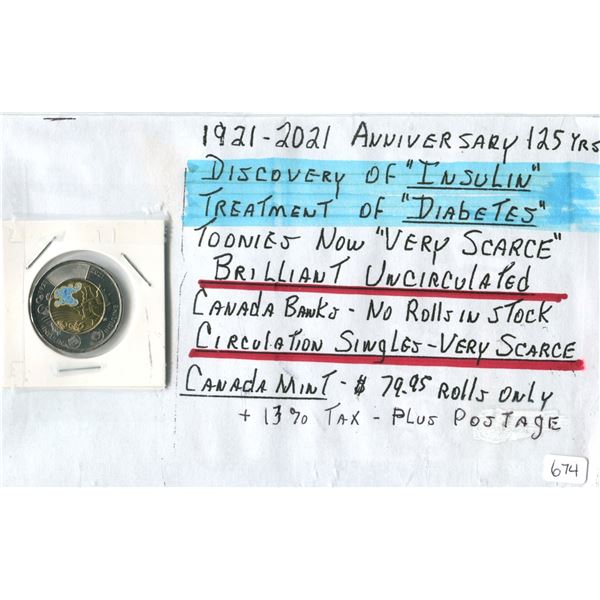 1921-2021 ANNIVERSARY 125 YRS
DISCOVERY OF "INSULIN"
TREATMENT OF "DIABETES"
TOONIES NOW "VERY SCARCE"
BRILLIANT UNCIRCULATED
CANADA BANKS - NO ROLLS IN STOCK
CIRCULATION SINGLES - VERY SCARCE
CANADA MINT - $ 79.95 ROLLS ONLY
+ 13% TAX - PLUS POSTAGE
674